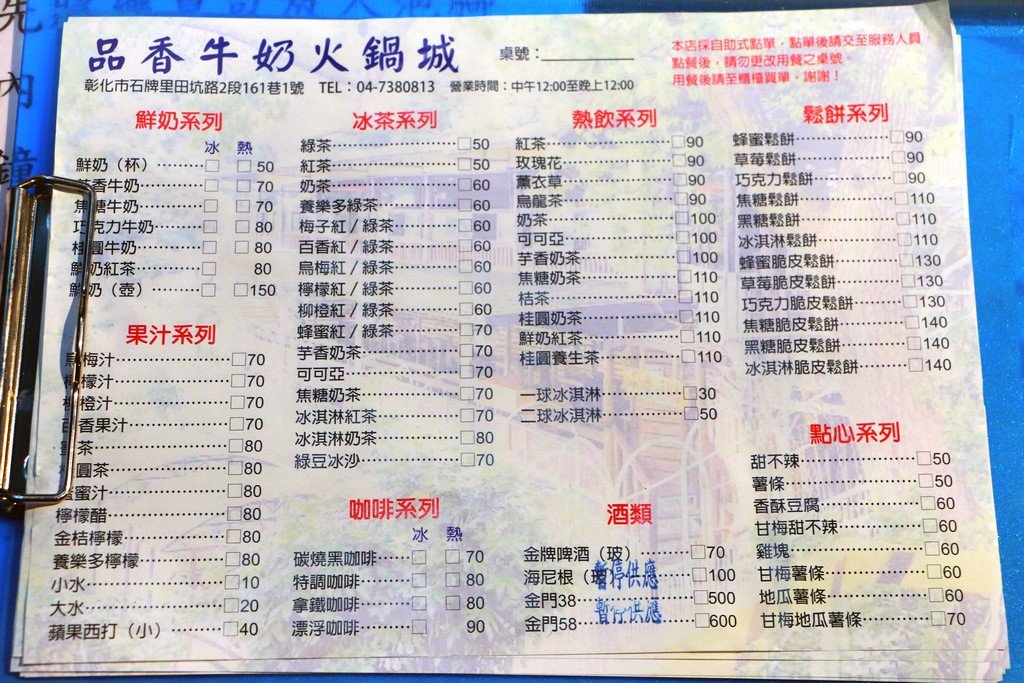 品香牛奶火鍋城
桌號：
彰化市石牌里田坑路2段161巷1號 TEL：04-7380813 營業時間：中午12:00至晚上12:00
本店採自助式點單，點單後請交至服務人員
點餐後，請勿更改用餐之桌號。
用餐後請至櫃檯買單，謝謝！
鮮奶系列
冰 熱
鮮奶（杯）……… □ □ 50
香牛奶……… □ □ 70
焦糖牛奶……… □ □ 70
巧克力牛奶……… □ □ 80
桂圓牛奶……… □ □ 80
鮮奶紅茶……… □ 80
鮮奶（壺）……… □ □150
果汁系列
烏梅汁………□70
檸檬汁………□70
橙汁………□70
百香果汁………□70
茶………□80
圓茶………□80
蜜汁………□80
檸檬醋………□80
金桔檸檬………□80
養樂多檸檬………□80
小水………□10
大水………□20
蘋果西打（小）………□40
冰茶系列
綠茶………□50
紅茶………□50
奶茶………□60
養樂多綠茶………□60
梅子紅／綠茶………□60
百香紅／綠茶………□60
烏梅紅／綠茶………□60
檸檬紅／綠茶………□60
柳橙紅／綠茶………□60
蜂蜜紅／綠茶………□70
芋香奶茶………□70
可可亞………□70
焦糖奶茶………□70
冰淇淋紅茶………□70
冰淇淋奶茶………□80
綠豆冰沙………□70
咖啡系列
冰 熱
碳燒黑咖啡……… □ □ 70
特調咖啡……… □ □ 80
拿鐵咖啡……… □ □ 80
漂浮咖啡……… □ 90
熱飲系列
紅茶………□90
玫瑰花………□90
薰衣草………□90
烏龍茶………□90
奶茶………□100
可可亞………□100
芋香奶茶………□100
焦糖奶茶………□110
桔茶………□110
桂圓奶茶………□110
鮮奶紅茶………□110
桂圓養生茶………□110
一球冰淇淋………□30
二球冰淇淋………□50
酒類
金牌啤酒（玻）………□70
海尼根（玻 暫停供應 □100
金門38………□500
金門58 暫停供應 □600
鬆餅系列
蜂蜜鬆餅………□90
草莓鬆餅………□90
巧克力鬆餅………□90
焦糖鬆餅………□110
黑糖鬆餅………□110
冰淇淋鬆餅………□110
蜂蜜脆皮鬆餅………□130
草莓脆皮鬆餅………□130
巧克力脆皮鬆餅………□130
焦糖脆皮鬆餅………□140
黑糖脆皮鬆餅………□140
冰淇淋脆皮鬆餅………□140
點心系列
甜不辣………□50
薯條………□50
香酥豆腐………□60
甘梅甜不辣………□60
雞塊………□60
甘梅薯條………□60
地瓜薯條………□60
甘梅地瓜薯條………□70